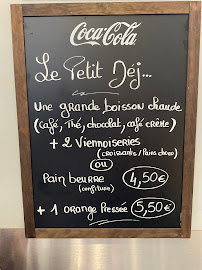 Coca-Cola
Le Petit Déj...
Une grande boisson chaude
(café, Thé, chocolat, café crème)
+ 2 Viennoiseries
(croissants / Pains choco)
ou
Pain beurre 4,50€
(confiture)
+ 1 orange Pressée 5,50€